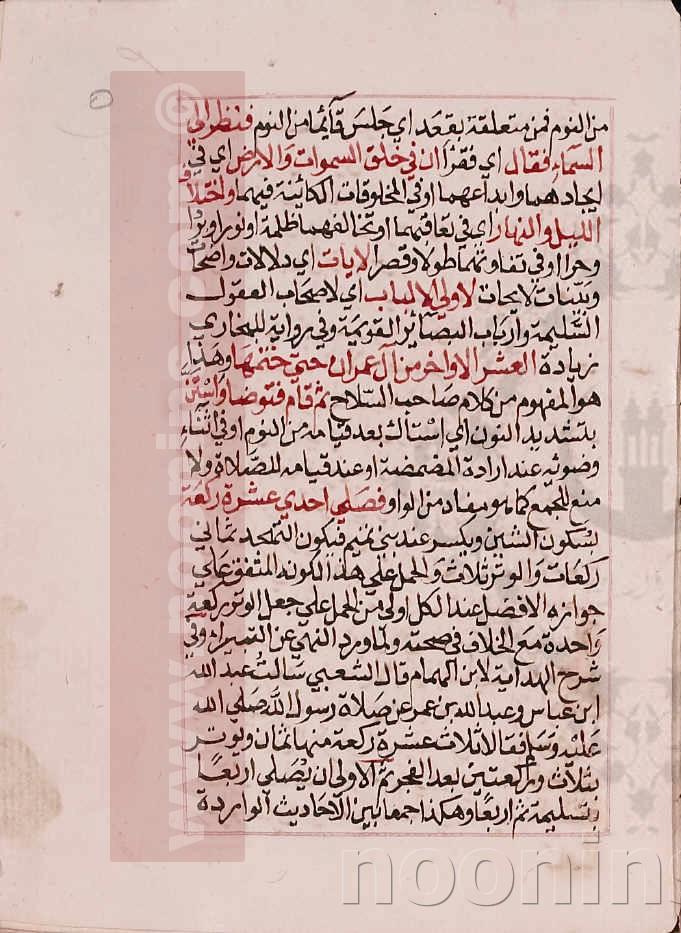 من النوم فمن متعلقة بقعد اي جلس قآئما من النوم فنظر الى
السماء فقال اي فقرأ ان في خلق السموات والارض اي في
ايجادهما وابداعهما او في المخلوقات الكائنة فيهما واختلاف
الليل والنهار اي في تعاقبهما او تخالفهما ظلمة او نورا وبردا
وحرا او في تفاوتهما طولا وقصرا لايات اي دلالات واضحات
وبينات لايحات لاولي الالباب اي لاصحاب العقول
السليمة وارباب البصآئر القويمة وفي رواية للبخاري
زيادة العشر الاواخر من آل عمران حتى ختمها وهذا
هو المفهوم من كلام صاحب السلاح ثم قام فتوضا واستن
بتشديد النون اي استاك بعد قيامه من النوم او في اثناء
وضوئه عند ارادة المضمضة او عند قيامه للصلاة ولا
منع للجمع كما هو مفاد من الواو فصلى احدي عشرة ركعة
بسكون الشين ويكسر عند بني تميم فيكون التهجد ثماني
ركعات والوتر ثلاث والحمل علي هذا لكونه المتفق علي
جوازه الافضل عند الكل اولى من الحمل علي جعل الوتر ركعة
واحدة مع الخلاف في صحته ولما ورد النهي عن البتيراء وفي
شرح الهداية لابن الهمام قال الشعبي سالت عبد الله
ابن عباس وعبد الله بن عمر عن صلاة رسول الله صلى الله
عليه وسلم فقالا ثلاث عشرة ركعة منها ثمان ويوتر
بثلاث وركعتين بعد الفجر ثم الاولى ان يصلي اربعا
بتسليمة ثم اربعا وهكذا جمعا بين الاحاديث الواردة
www.noonins.com ©
noonin